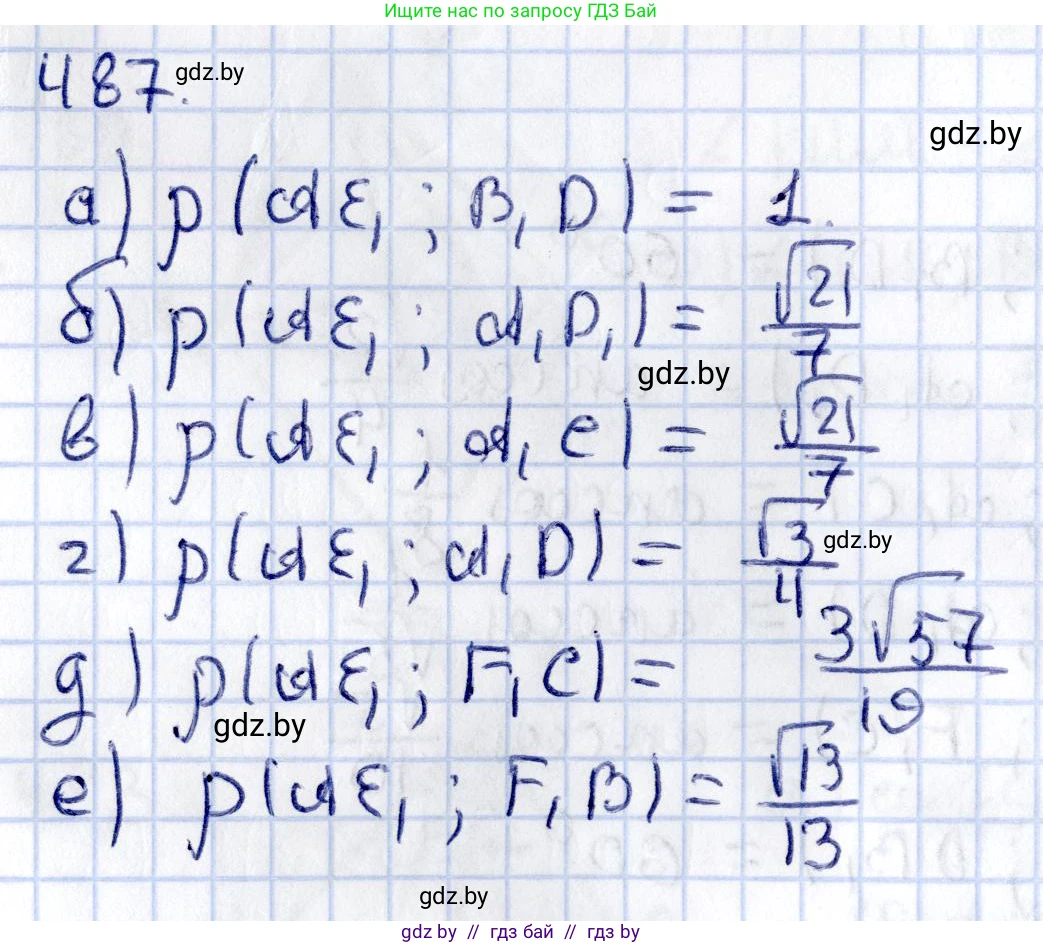 Ищите нас по запросу ГДЗ Бай
487. gdz.by
gdz.by
а) ρ(AE₁; B₁D) = 1.
б) ρ(AE₁; A₁D₁) = √21/7
gdz.by
в) ρ(AE₁; A₁C) = √21/7
г) ρ(AE₁; A₁D) = √3/4 gdz.by
д) ρ(AE₁; F₁C) = 3√57/19
gdz.by
е) ρ(AE₁; F₁B) = √13/13
gdz.by
gdz.by // гдз бай // гдз by